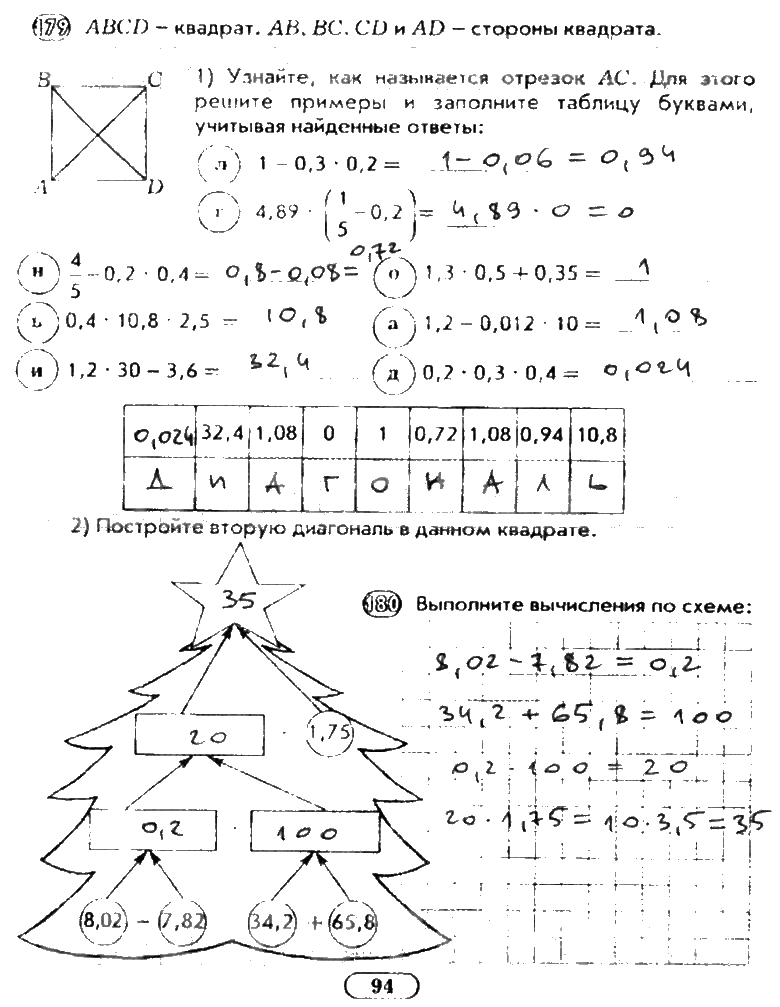 179 ABCD – квадрат. AB, BC, CD и AD – стороны квадрата.
B C
A D
1) Узнайте, как называется отрезок AC. Для этого
решите примеры и заполните таблицу буквами,
учитывая найденные ответы:
л 1 – 0,3 · 0,2 = 1 – 0,06 = 0,94
г 4,89 · (1/5 – 0,2) = 4,89 · 0 = 0
н 4/5 – 0,2 · 0,4 = 0,8 – 0,08 = 0,72
о 1,3 · 0,5 + 0,35 = 1
ь 0,4 · 10,8 · 2,5 = 10,8
а 1,2 – 0,012 · 10 = 1,08
и 1,2 · 30 – 3,6 = 32,4
д 0,2 · 0,3 · 0,4 = 0,024
0,024 32,4 1,08 0 1 0,72 1,08 0,94 10,8
Д И А Г О Н А Л Ь
2) Постройте вторую диагональ в данном квадрате.
35
20 · 1,75
0,2 · 100
8,02 – 7,82 34,2 + 65,8
180 Выполните вычисления по схеме:
8,02 – 7,82 = 0,2
34,2 + 65,8 = 100
0,2 · 100 = 20
20 · 1,75 = 10 · 3,5 = 35
94